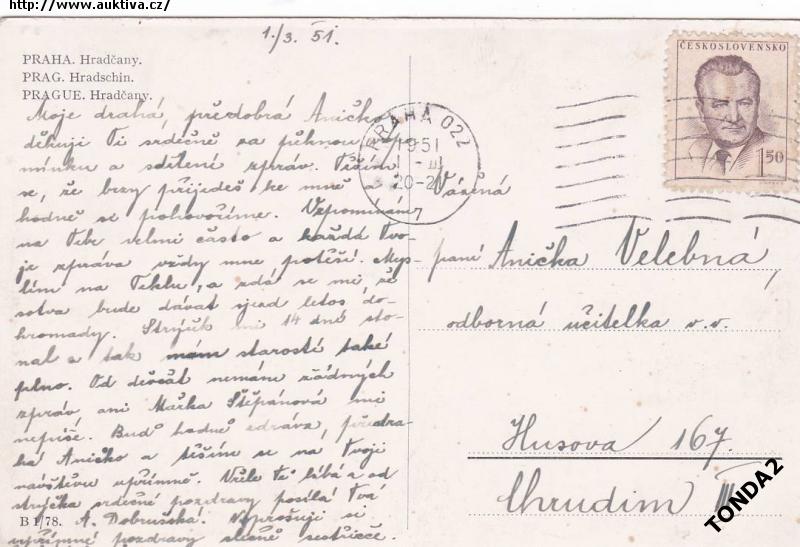 http://www.auktiva.cz/
1./3. 51.
PRAHA. Hradčany.
PRAG. Hradschin.
PRAGUE. Hradčany.
Moje drahá, předobrá Aničko,
děkuji Ti srdečně za pěknou
mínku a sdělené zpráv. Těším
se, že brzy přijedeš ke mně a
hodně se pohovoříme. Vzpomínám
na Tebe velmi často a každá Tvo-
je zpráva vždy mne potěší. Mys-
lím na Téklu, a zdá se mi, že
sotva bude dávat sjezd letos do-
hromady. Strýček mi 14 dně sto-
nal a tak mám starostí také
plno. Od děvčat nemám žádných
zpráv, ani Mařka Štěpánová mi
nepíše. Buď hodně zdráva, předra-
há Aničko a těším se na Tvoji
návštěvu upřímně. Vřele Tě líbá a od
strýčka srdečné pozdravy posílá Tvá
A. Dobrušská. Neprošuji si
upřímné pozdravy slečně sestřičce.
B 1/78.
PRAHA 022
1951
1 - III
20-2
7
ČESKOSLOVENSKO
1,50
Vážená
paní Anička Velebná,
odborná učitelka v. v.
Husova 167.
Chrudim III
TONDA2